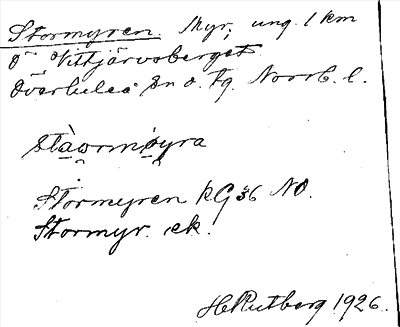 Stormyren. Myr, ung. 1 km
Ö Vittjärvsberget.
Överluleå sn o. tg. Norrb. l.
staormöyra
Stormyren kG 36 NO.
Stormyr. ek.
H. Rutberg 1926.